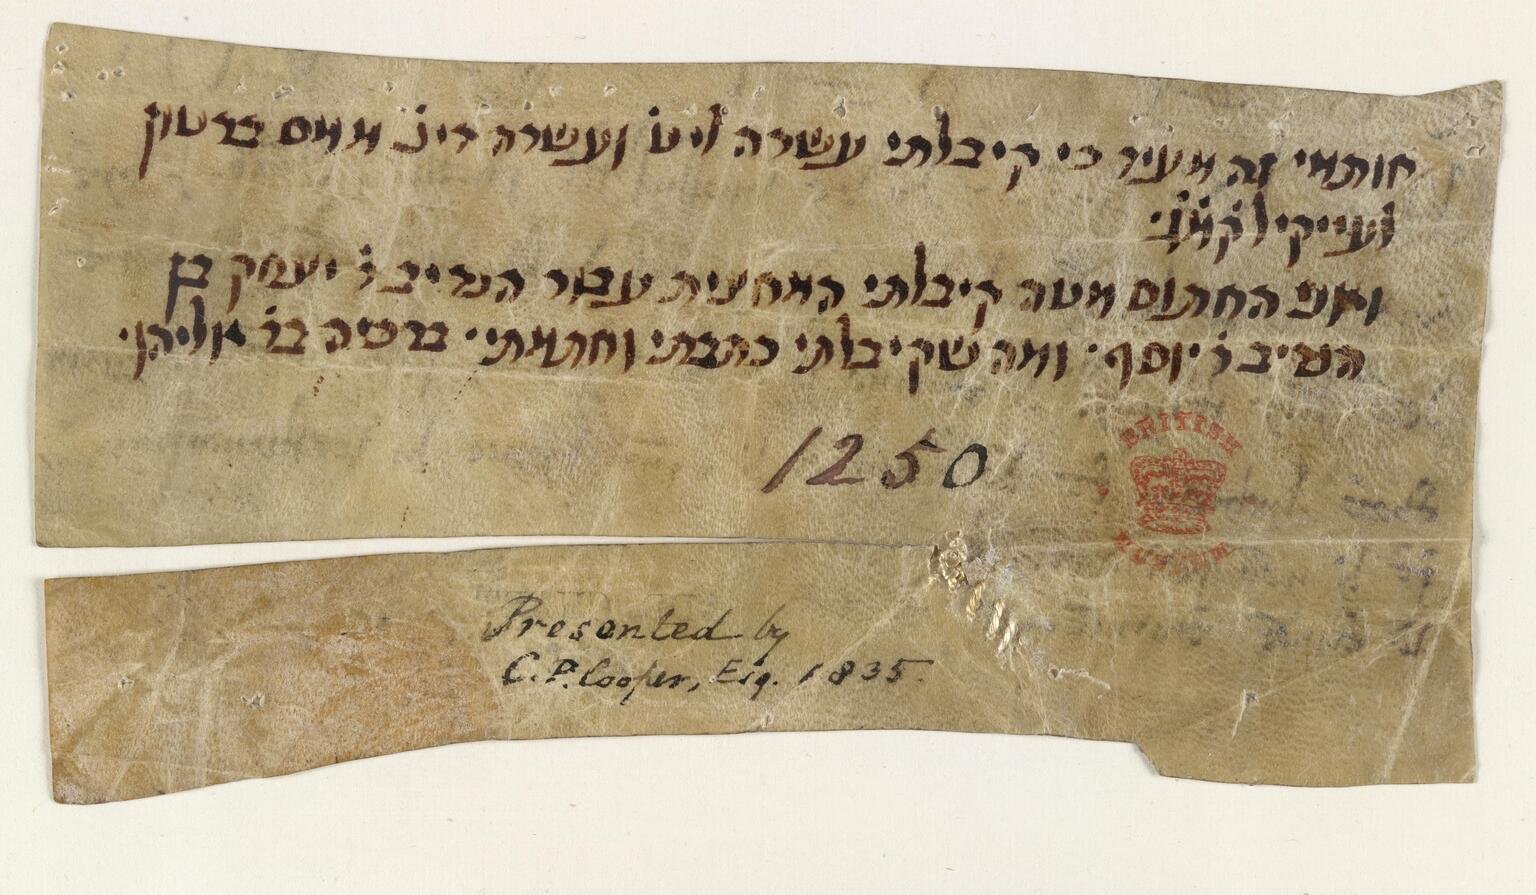 חותמי זה מעיד כי קיבלתי עשרה ליט׳ ועשרה דינ׳ ממס ברטון
ואני החתום מטה קיבלתי המחצית עבור הנדיב ר׳ יצחק בן
הנדיב ר׳ יוסף׳ ומה שקיבלתי כתבתי וחתמתי׳ ברכיה בר׳ אליהו׳
1250
BRITISH
MUSEUM
Presented by
C. P. Cooper, Esq. 1835.